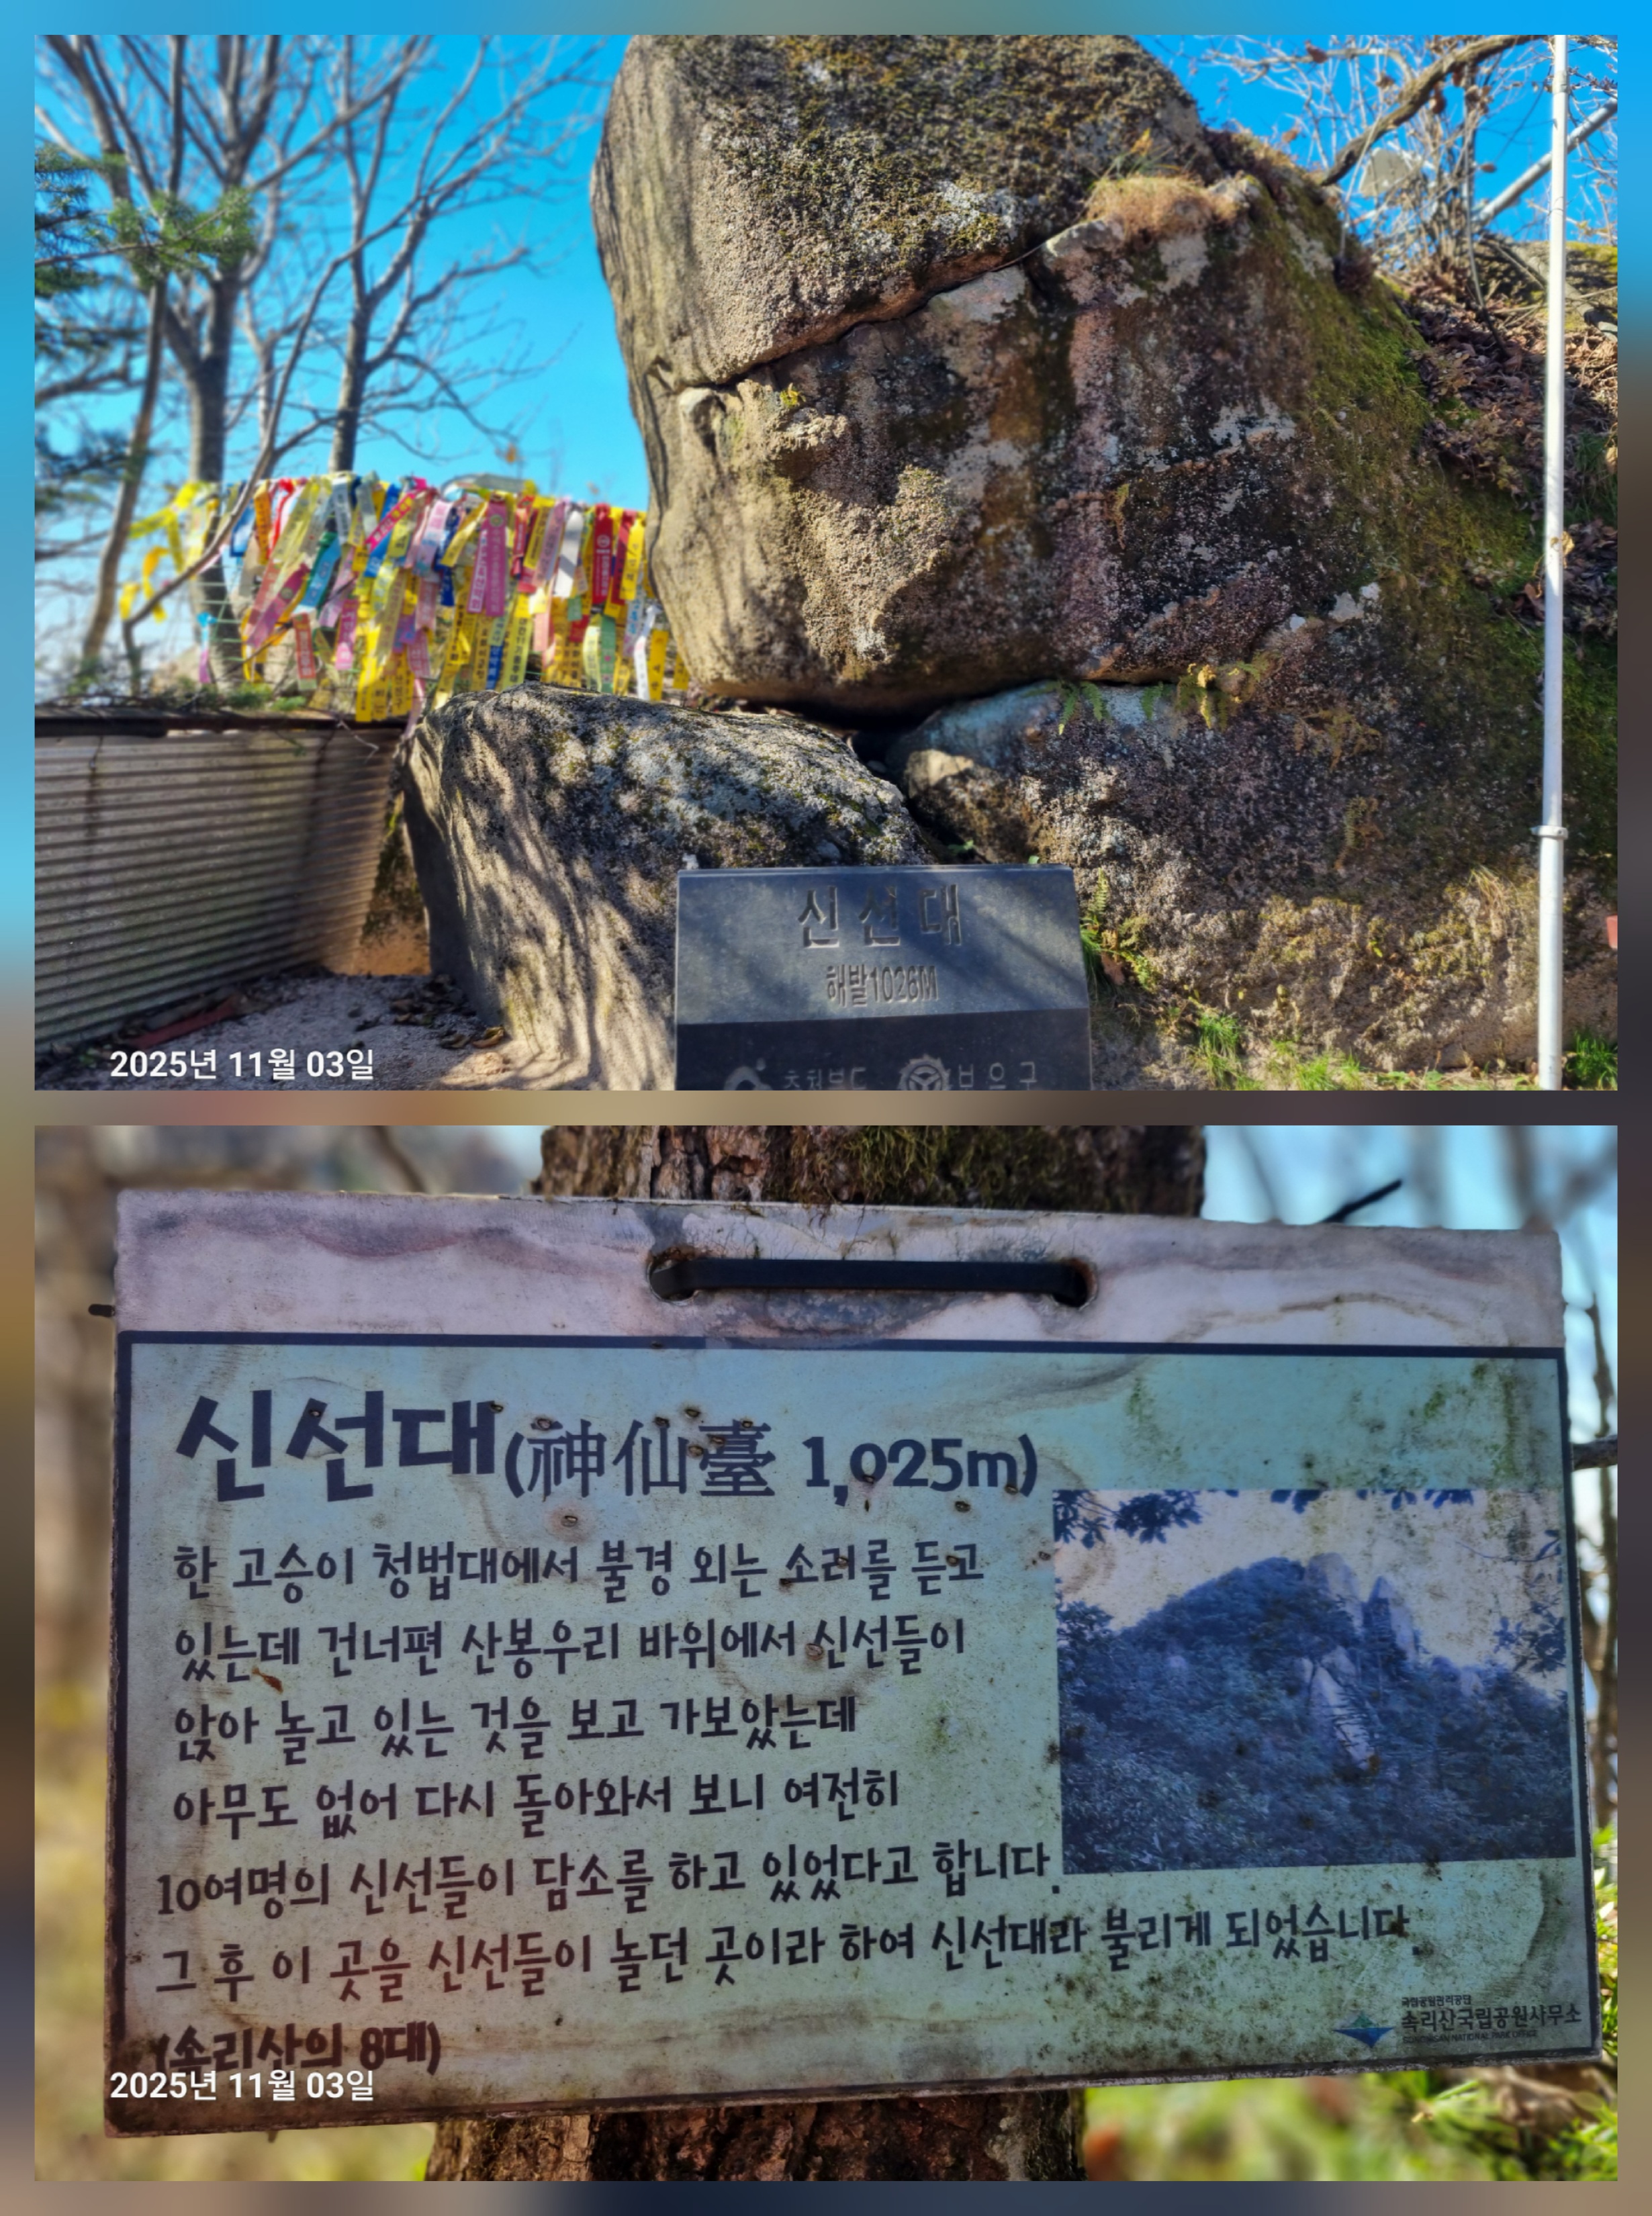 신선대
해발1026M
충청북도 보은군
2025년 11월 03일
신선대(神仙臺 1,025m)
한 고승이 청법대에서 불경 외는 소리를 듣고
있는데 건너편 산봉우리 바위에서 신선들이
앉아 놀고 있는 것을 보고 가보았는데
아무도 없어 다시 돌아와서 보니 여전히
10여명의 신선들이 담소를 하고 있었다고 합니다.
그 후 이 곳을 신선들이 놀던 곳이라 하여 신선대라 불리게 되었습니다.
(속리산의 8대)
국립공원관리공단
속리산국립공원사무소
SONGNISAN NATIONAL PARK OFFICE
2025년 11월 03일